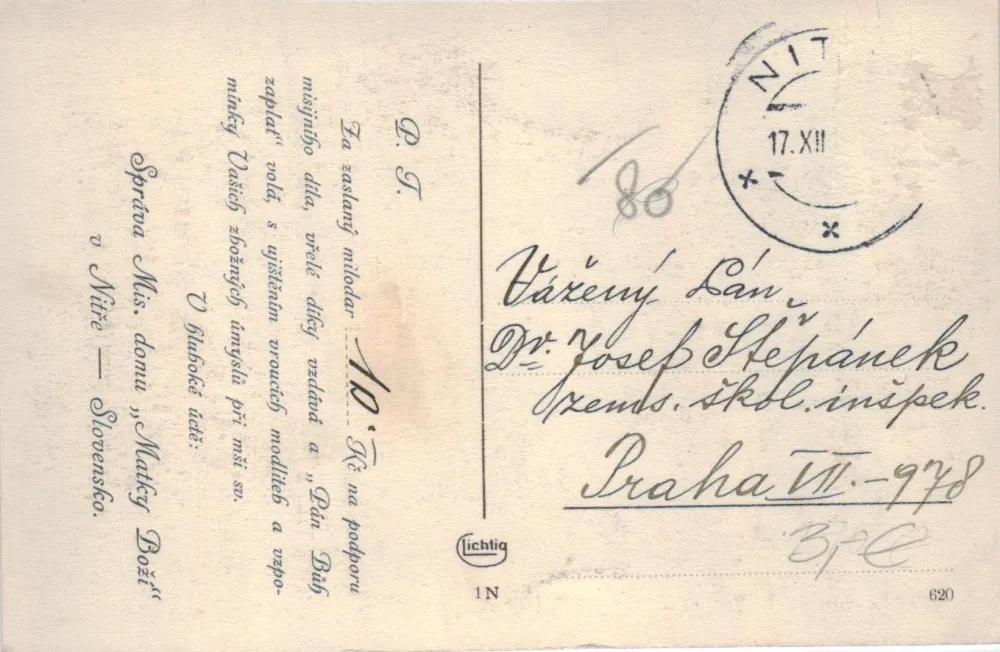 P. T.
Za zaslaný milodar 10'— Kč na podporu
misijního díla, vřelé díky vzdává a „Pán Bůh
zaplať“ volá, s ujištěním vroucích modliteb a vzpo-
mínky Vašich zbožných úmyslů při mši sv.
V hluboké úctě:
Správa Mis. domu „Matky Boží“
v Nitře — Slovensko.
NIT
17. XII
80
Vážený Pán
Dr. Josef Štěpánek
zems. škol. inšpek.
Praha VII. - 978
lichtig
1 N
620